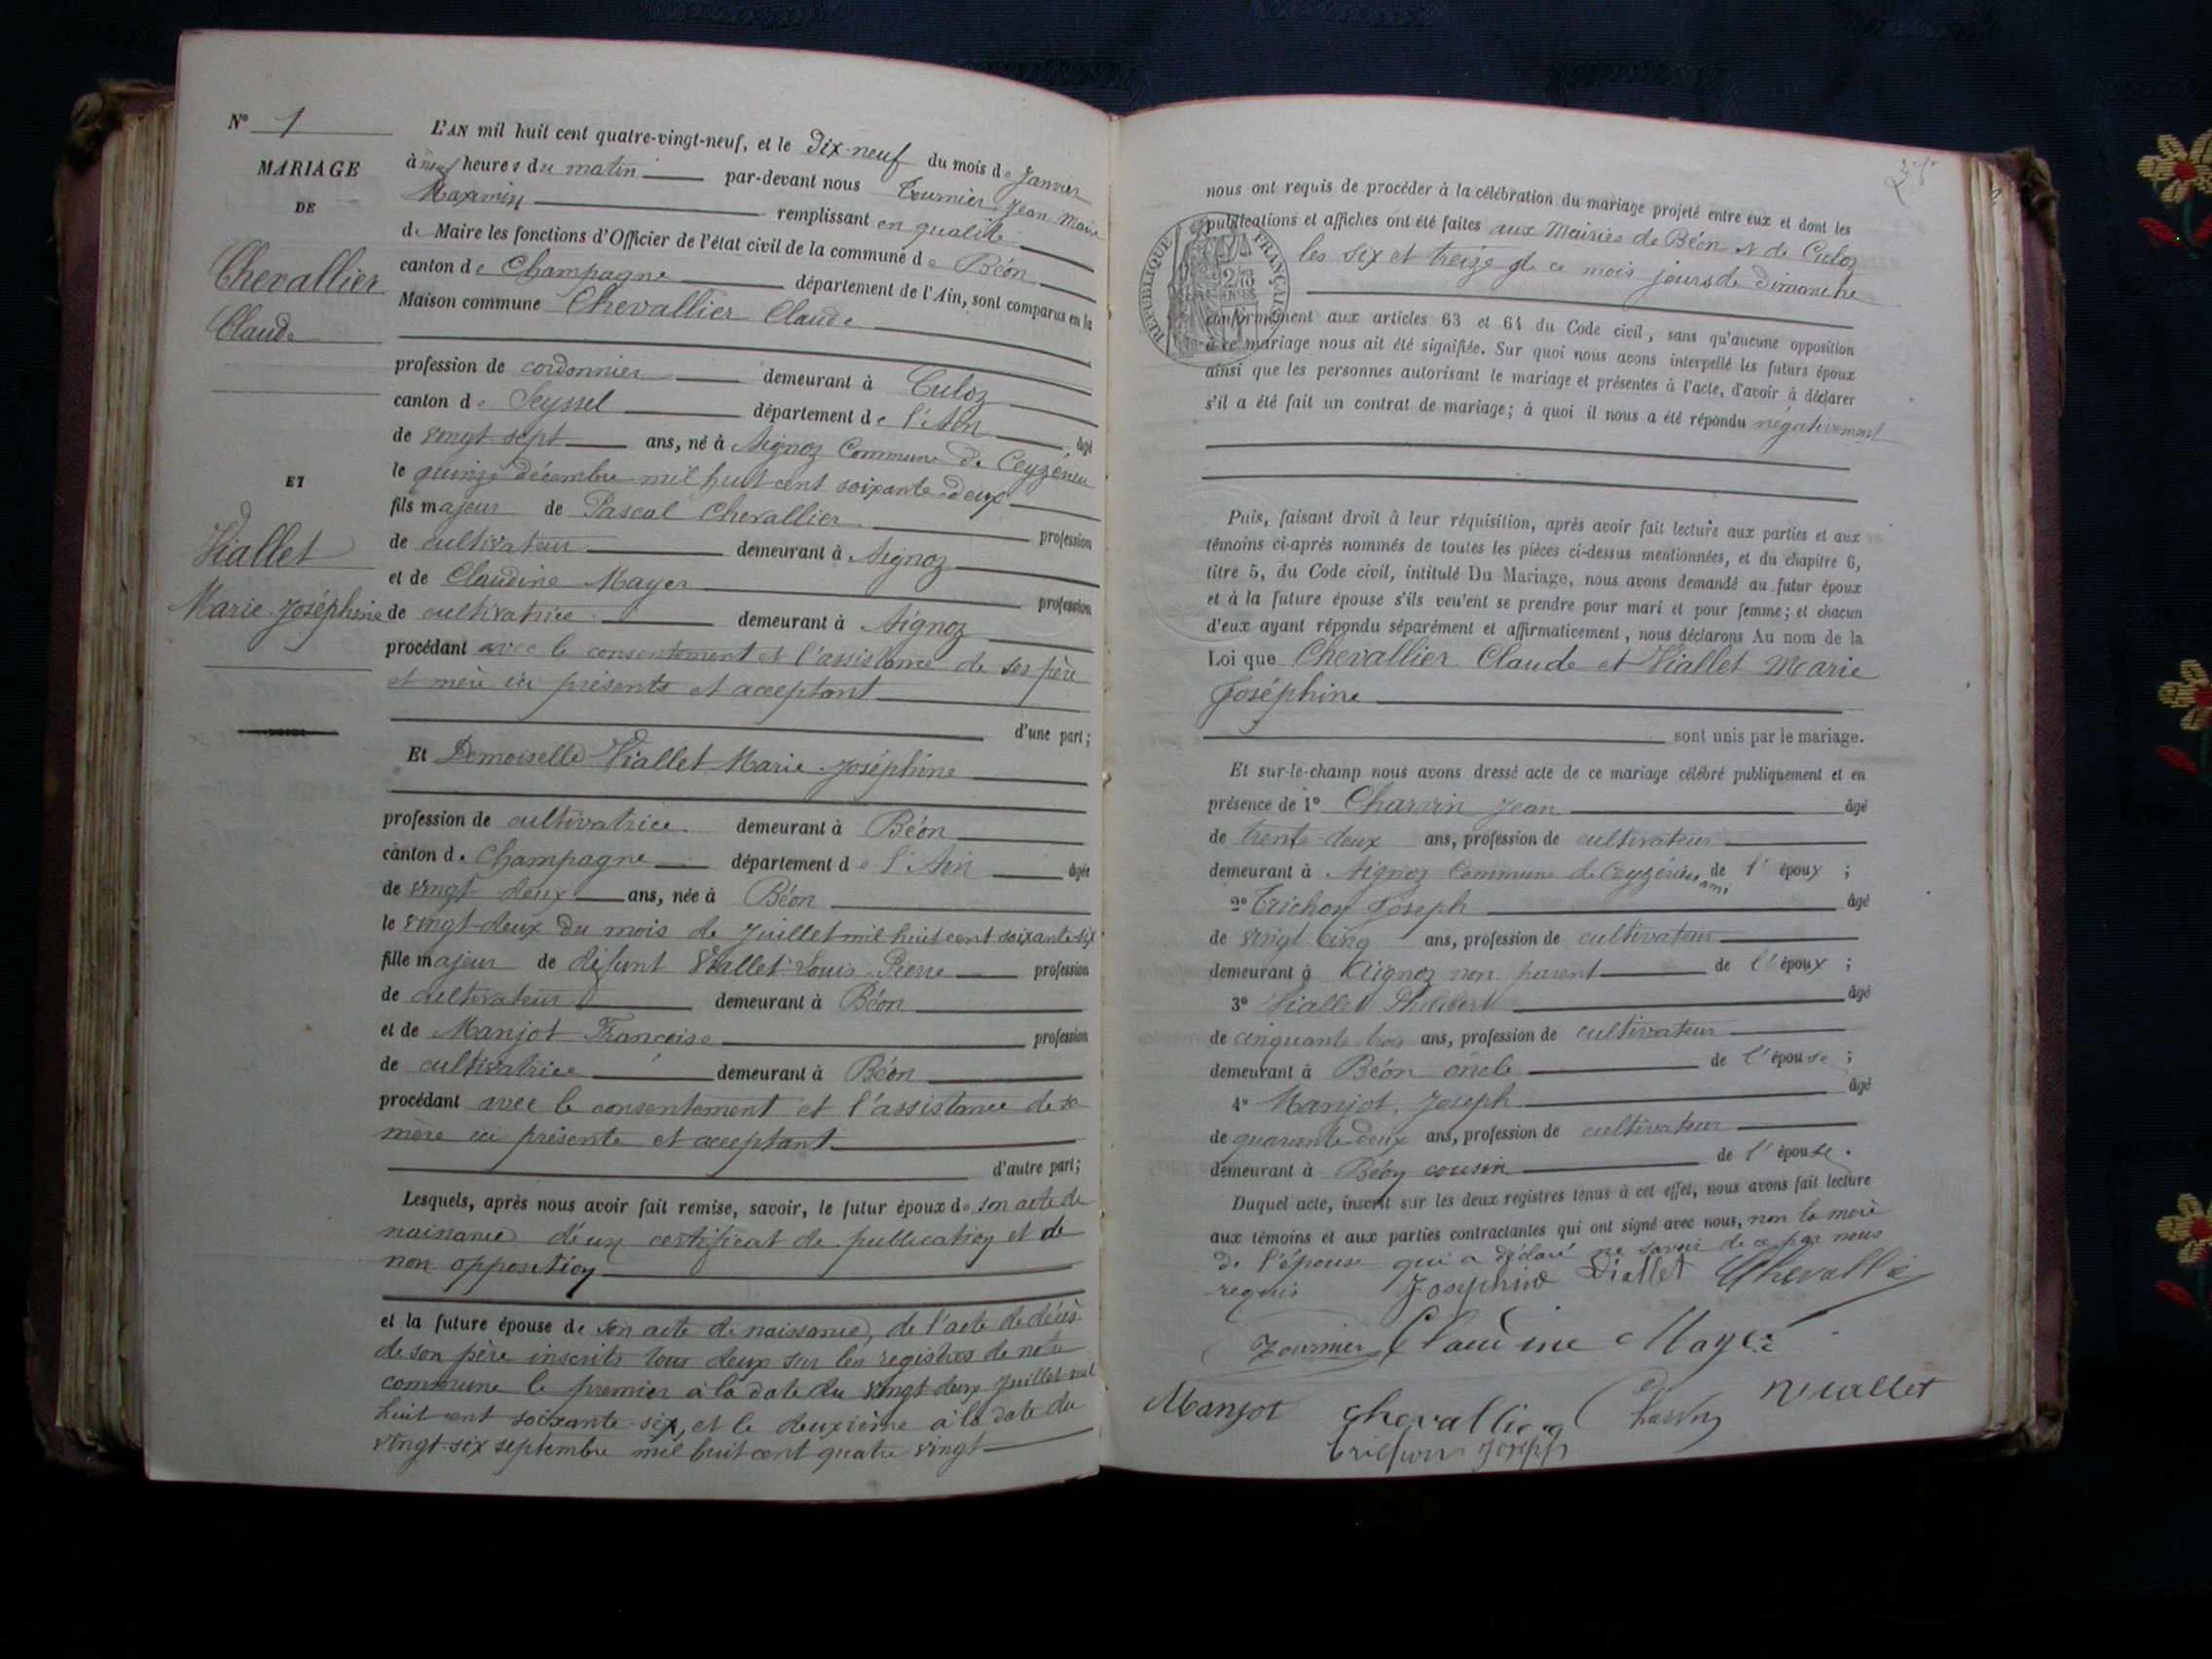 N° 1
MARIAGE
DE
Chevallier
Claude
ET
Viallet
Marie Joséphine
L'AN mil huit cent quatre-vingt-neuf, et le Dix-neuf du mois de Janvier
à neuf heures du matin par-devant nous Tournier Jean Marie
Maxmin remplissant en qualité
de Maire les fonctions d'Officier de l'état civil de la commune de Béon
canton de Champagne département de l'Ain, sont comparus en la
Maison commune Chevallier Claude
profession de cordonnier demeurant à Culoz
canton de Seyssel département de l'Ain âgé
de vingt sept ans, né à Aignoz Commune de Ceyzérieu
le quinze décembre mil huit cent soixante deux
fils majeur de Pascal Chevallier profession
de cultivateur demeurant à Aignoz
et de Claudine Mayer profession
de cultivatrice demeurant à Aignoz
procédant avec le consentement et l'assistance de ses père
et mère ici présents et acceptant
d'une part;
Et Demoiselle Viallet Marie Joséphine
profession de cultivatrice demeurant à Béon
canton de Champagne département de l'Ain âgée
de vingt deux ans, née à Béon
le vingt-deux du mois de Juillet mil huit cent soixante-six
fille majeur de défunt Viallet Louis Pierre profession
de cultivateur demeurant à Béon
et de Manjot Françoise profession
de cultivatrice demeurant à Béon
procédant avec le consentement et l'assistance de sa
mère ici présente et acceptant
d'autre part;
Lesquels, après nous avoir fait remise, savoir, le futur époux de son acte de
naissance d'un certificat de publication et de
non opposition
et la future épouse de son acte de naissance, de l'acte de décès
de son père inscrits tous deux sur les registres de notre
commune le premier à la date du vingt deux Juillet mil
huit cent soixante-six, et le deuxième à la date du
vingt-six septembre mil huit cent quatre vingt
nous ont requis de procéder à la célébration du mariage projeté entre eux et dont les
publications et affiches ont été faites aux Mairies de Béon et de Culoz
les six et treize de ce mois jours de Dimanche
RÉPUBLIQUE FRANÇAISE
conformément aux articles 63 et 64 du Code civil, sans qu'aucune opposition
à ce mariage nous ait été signifiée. Sur quoi nous avons interpellé les futurs époux
ainsi que les personnes autorisant le mariage et présentes à l'acte, d'avoir à déclarer
s'il a été fait un contrat de mariage; à quoi il nous a été répondu négativement
Puis, faisant droit à leur réquisition, après avoir fait lecture aux parties et aux
témoins ci-après nommés de toutes les pièces ci-dessus mentionnées, et du chapitre 6,
titre 5, du Code civil, intitulé Du Mariage, nous avons demandé au futur époux
et à la future épouse s'ils veulent se prendre pour mari et pour femme; et chacun
d'eux ayant répondu séparément et affirmativement, nous déclarons Au nom de la
Loi que Chevallier Claude et Viallet Marie
Joséphine
sont unis par le mariage.
Et sur-le-champ nous avons dressé acte de ce mariage célébré publiquement et en
présence de 1° Charvin Jean âgé
de trente deux ans, profession de cultivateur
demeurant à Aignoz Commune de Ceyzérieu ami de l'époux ;
2° Trichon Joseph âgé
de vingt cinq ans, profession de cultivateur
demeurant à Aignoz non parent de l'époux ;
3° Viallet Philibert âgé
de cinquante trois ans, profession de cultivateur
demeurant à Béon oncle de l'épouse ;
4° Manjot Joseph âgé
de quarante deux ans, profession de cultivateur
demeurant à Béon cousin de l'épouse.
Duquel acte, inscrit sur les deux registres tenus à cet effet, nous avons fait lecture
aux témoins et aux parties contractantes qui ont signé avec nous, non la mère
de l'épouse qui a déclaré ne savoir de ce par nous
requis Josephine Viallet Chevallie
Tournier Claudine Mayer
Manjot chevallier Charvin Viallet
trichon Joseph